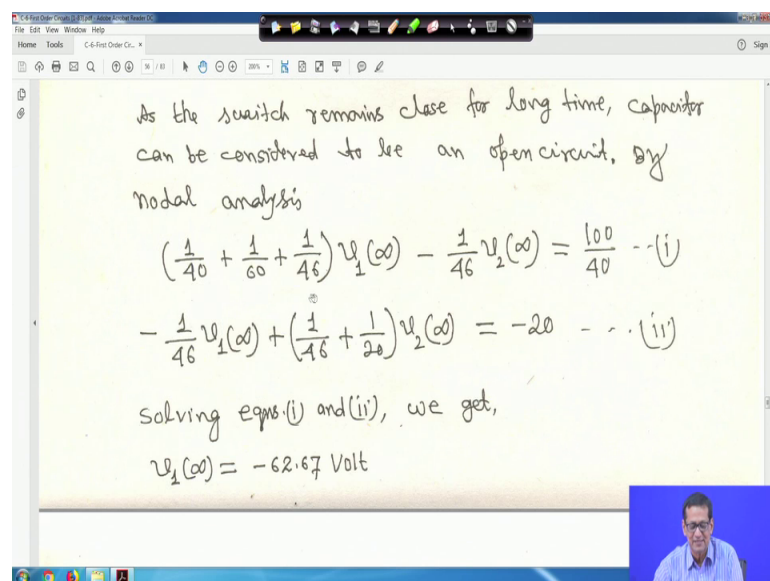 C-6-First Order Circuits [1-83].pdf - Adobe Acrobat Reader DC
File Edit View Window Help
Home Tools C-6-First Order Cir... × Sign
56 / 83 200%
As the switch remains close for long time, capacitor
can be considered to be an open circuit. By
nodal analysis
(1/40 + 1/60 + 1/46) v₁(∞) - 1/46 v₂(∞) = 100/40 --(i)
- 1/46 v₁(∞) + (1/46 + 1/20) v₂(∞) = -20 - ...(ii)
Solving eqns.(i) and (ii), we get,
v₁(∞) = -62.67 Volt